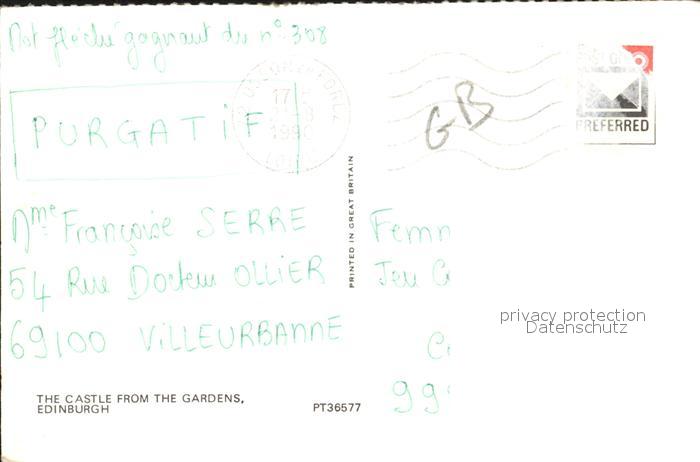 Mot fléché gagnant du n° 308
PURGATIF
17
GB
POST OFFICE
PREFERRED
PRINTED IN GREAT BRITAIN
Mme Françoise SERRE
54 Rue Docteur OLLIER
69100 VILLEURBANNE
Femm
Jeu C
C
99
privacy protection
Datenschutz
THE CASTLE FROM THE GARDENS,
EDINBURGH
PT36577